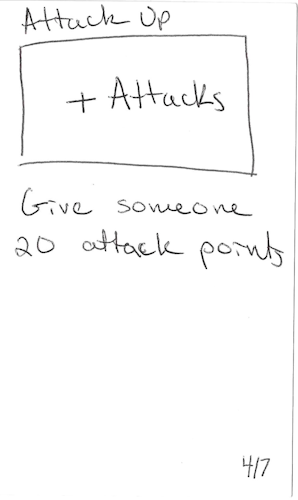 Attack Up
+ Attacks
Give someone
20 attack points
4/7